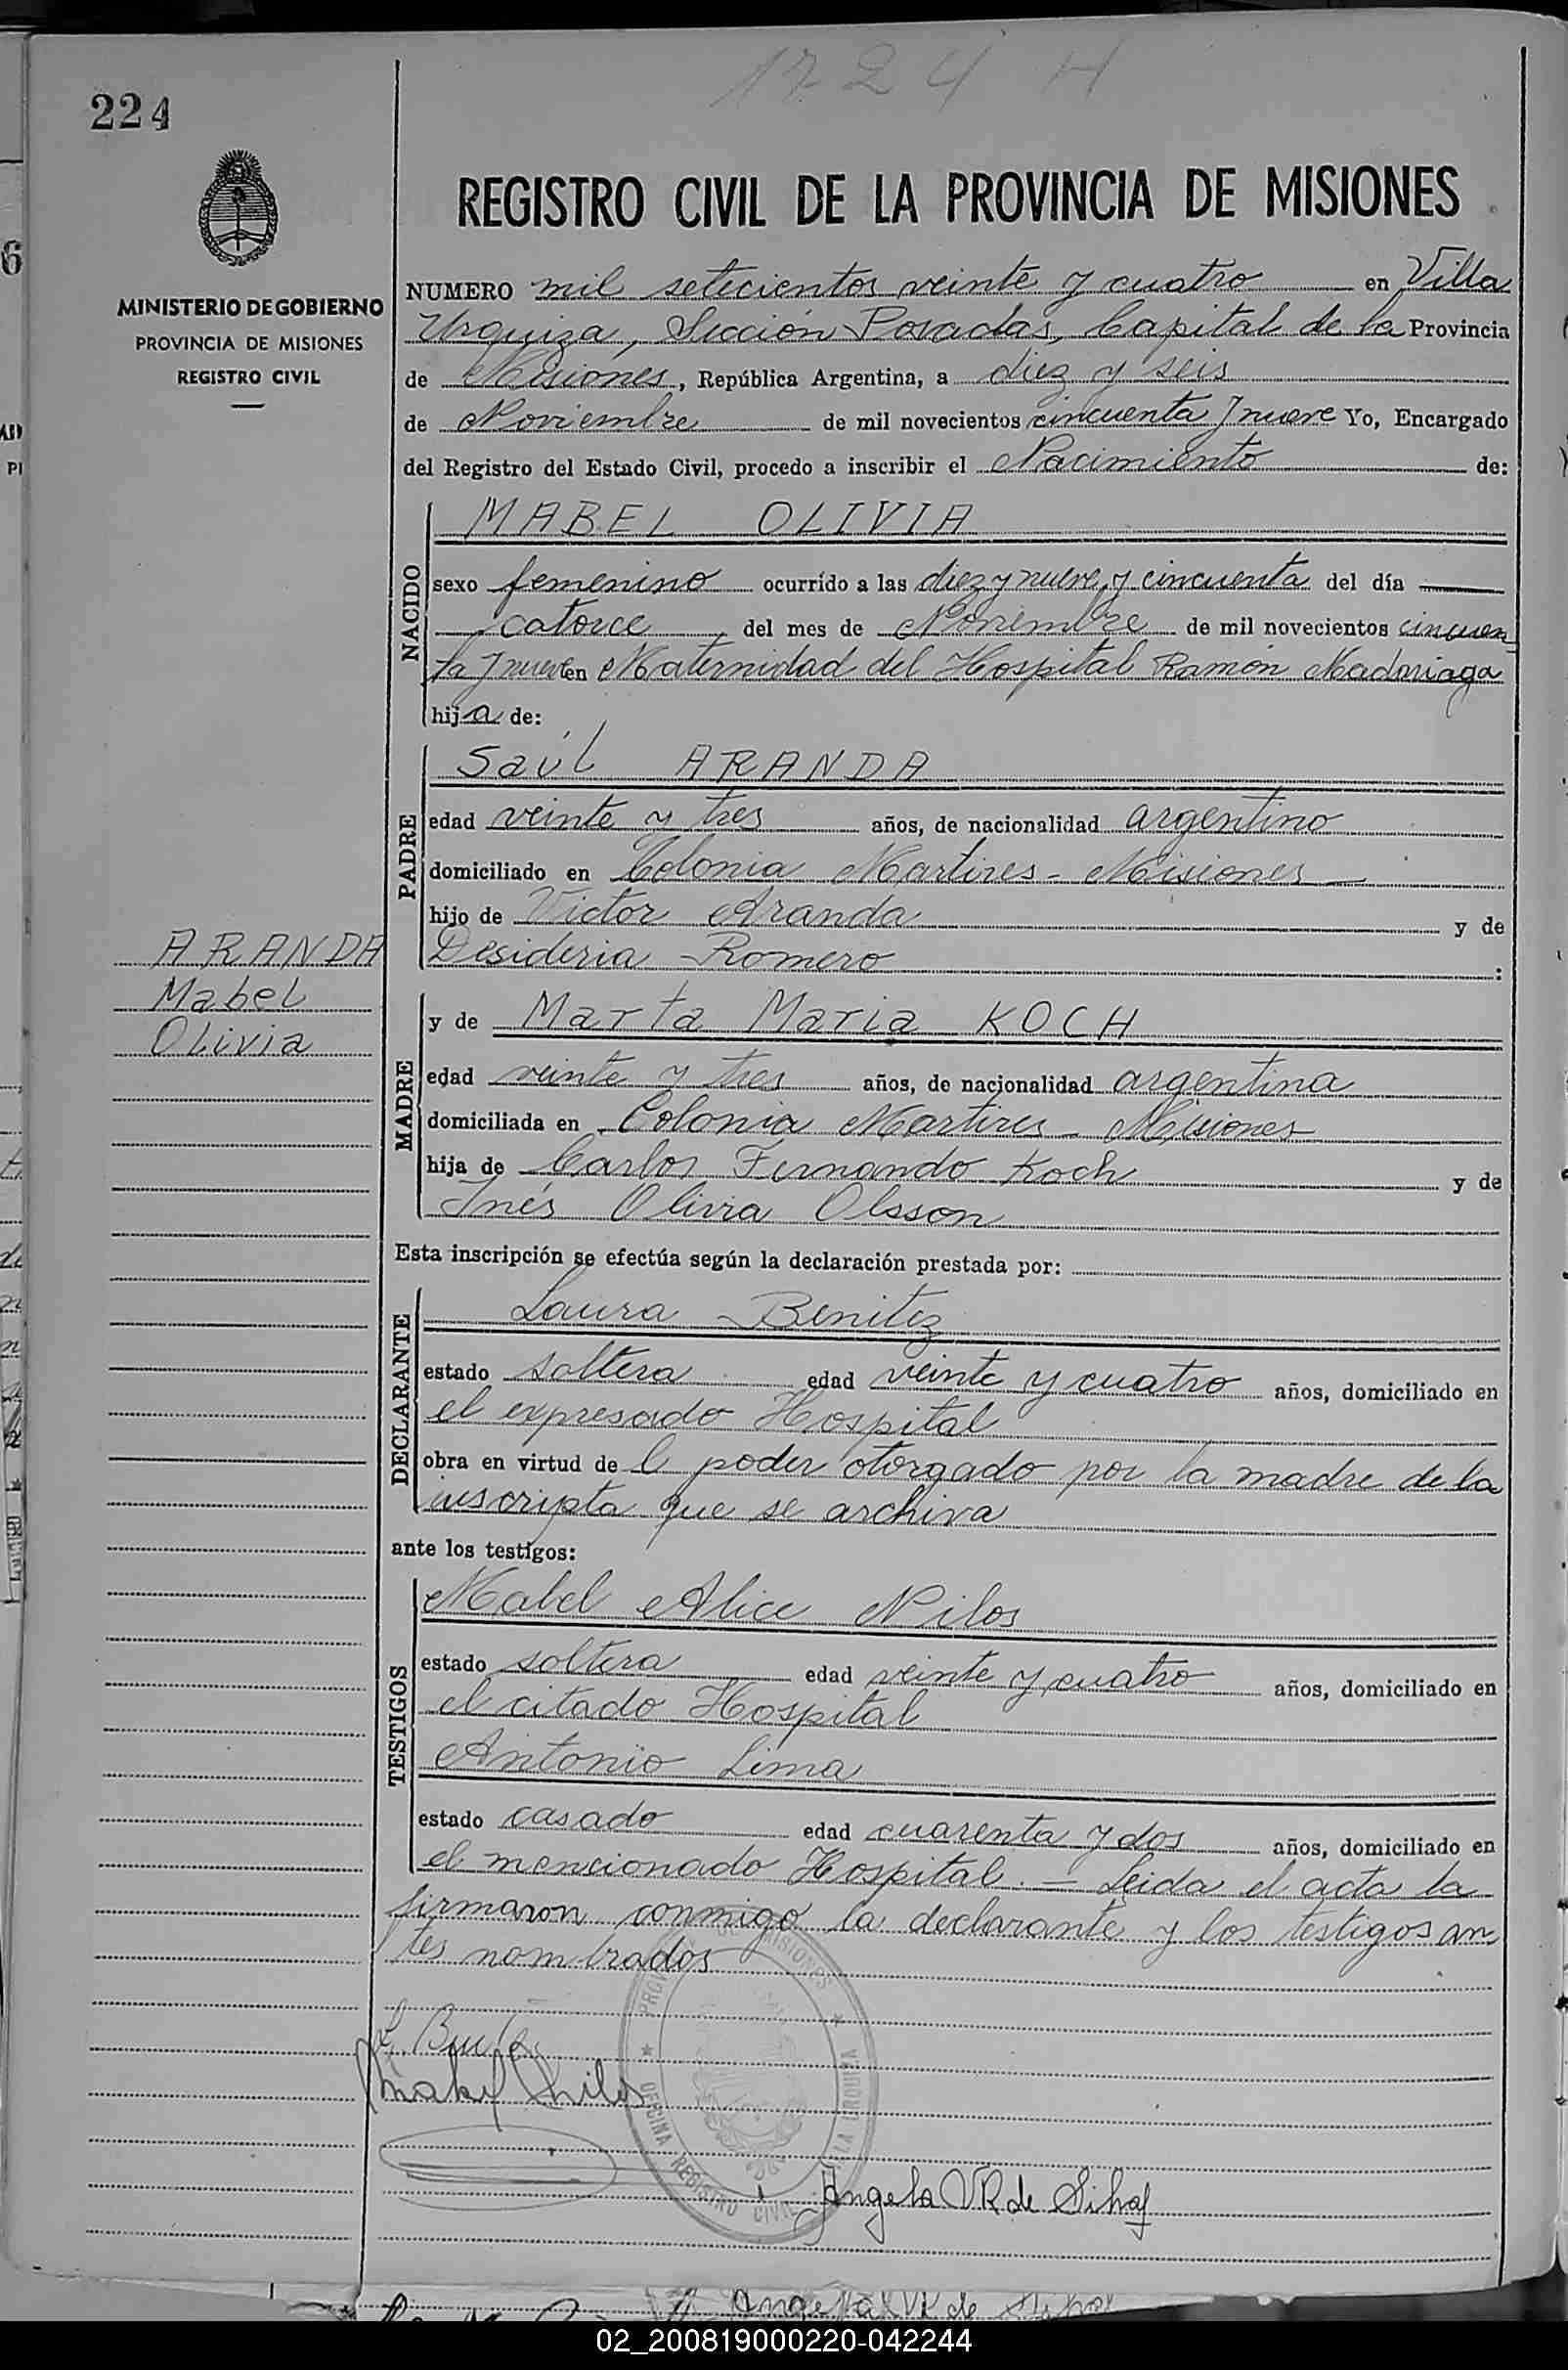 1724 H
224
REGISTRO CIVIL DE LA PROVINCIA DE MISIONES
MINISTERIO DE GOBIERNO
PROVINCIA DE MISIONES
REGISTRO CIVIL
NUMERO mil setecientos veinte y cuatro en Villa
Urquiza, Sección Posadas, Capital de la Provincia
de Misiones, República Argentina, a diez y seis
de Noviembre de mil novecientos cincuenta y nueve Yo, Encargado
del Registro del Estado Civil, procedo a inscribir el Nacimiento de:
NACIDO
MABEL OLIVIA
sexo femenino ocurrido a las diez y nueve y cincuenta del día
catorce del mes de Noviembre de mil novecientos cincuen
ta y nueve en Maternidad del Hospital Ramón Madariaga
hija de:
PADRE
Saúl ARANDA
edad veinte y tres años, de nacionalidad argentino
domiciliado en Colonia Martires - Misiones
hijo de Victor Aranda y de
Desideria Romero :
ARANDA
Mabel
Olivia
MADRE
y de Marta Maria KOCH
edad veinte y tres años, de nacionalidad argentina
domiciliada en Colonia Martires - Misiones
hija de Carlos Fernando Koch y de
Inés Olivia Olsson
Esta inscripción se efectúa según la declaración prestada por:
DECLARANTE
Laura Benitez
estado soltera edad veinte y cuatro años, domiciliado en
el expresado Hospital
obra en virtud de l poder otorgado por la madre de la
inscripta que se archiva
ante los testigos:
TESTIGOS
Mabel Alice Nilos
estado soltera edad veinte y cuatro años, domiciliado en
el citado Hospital
Antonio Lima
estado casado edad cuarenta y dos años, domiciliado en
el mencionado Hospital. - Leida el acta la
firmaron conmigo la declarante y los testigos an
tes nombrados
PROVINCIA DE MISIONES
OFICINA REGISTRO CIVIL VILLA URQUIZA
Mabel Nilos
Angela V R de Sihaf
02_200819000220-042244